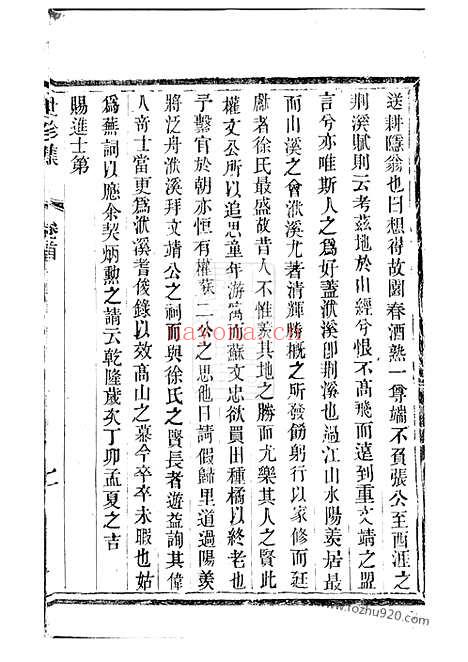 送耕隱翁也曰想得故園春酒熟一尊端不負張公至西涯之
荆溪賦則云考茲地於山經兮恨不髙飛而遠到重文靖之盟
言兮亦唯斯人之爲好蓋洑溪卽荆溪也過江山水陽羡居最
而山溪之會洑溪尤著清輝勝概之所發飭躬行以家修而廷
獻者徐氏最盛故昔人不惟羡其地之勝而尤樂其人之賢此
權文公所以追思童年游蒍而蘇文忠欲買田種橘以終老也
予繫官於朝亦恒有權蘇二公之思他日請假歸里道過陽羡
將泛舟洑溪拜文靖公之祠而與徐氏之賢長者遊益詢其偉
人竒士當更爲洑溪耆俊錄以效髙山之慕今卒卒未暇也姑
爲蕪詞以應余契炳勲之請云乾隆歲次丁卯孟夏之吉
賜進士第
世珍集
卷首
nasona.com
www.tozhu920.com